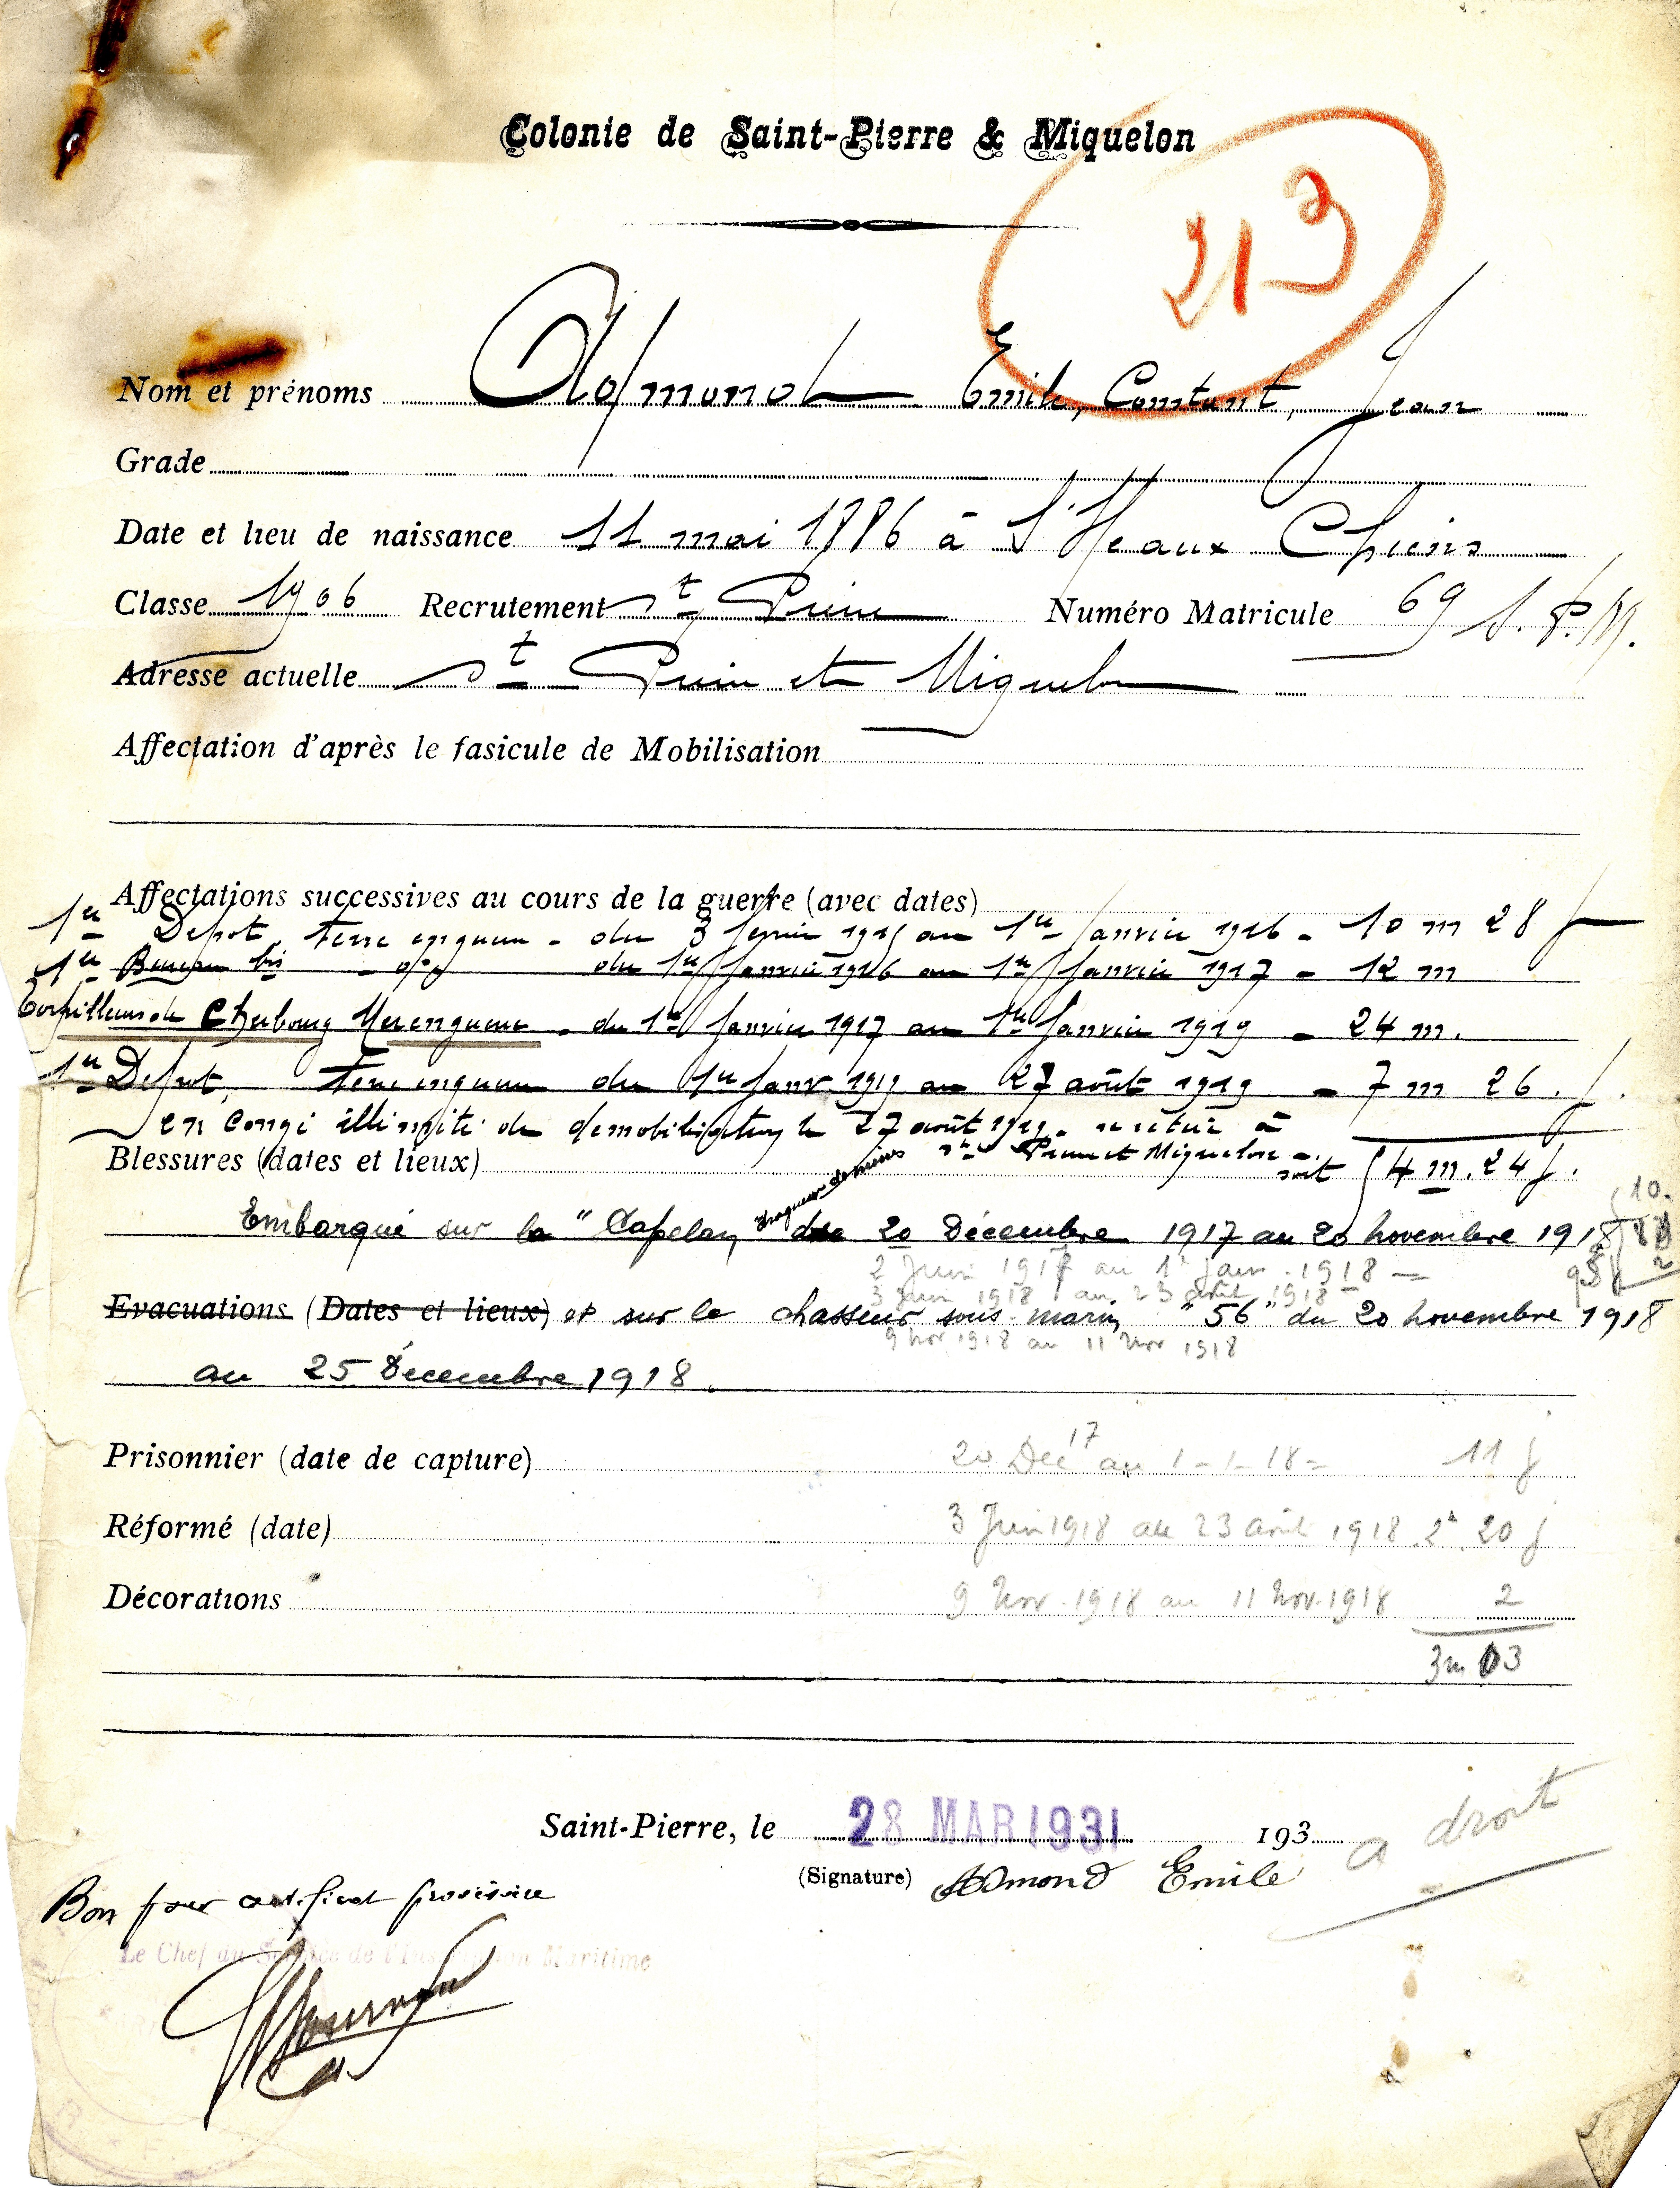 Colonie de Saint-Pierre & Miquelon
213
Nom et prénoms Apmond Emile, Constant, Jean
Grade
Date et lieu de naissance 11 mai 1886 à l'Ileaux Chiens
Classe 1906 Recrutement St Pierre Numéro Matricule 69 S.P.M.
Adresse actuelle St Pierre et Miquelon
Affectation d'après le fasicule de Mobilisation
Affectations successives au cours de la guerre (avec dates)
1er Depot Terre du 3 fevrier 1915 au 1er Janvier 1916 - 10 m 28 j
1er Bureau bis - du 1er Janvier 1916 au 1er Janvier 1917 - 12 m
Torpilleurs de Cherbourg Mer en guerre - du 1er Janvier 1917 au 1er Janvier 1919 - 24 m.
1er Depot, Terre en guerre du 1er Janv 1919 au 27 août 1919 - 7 m 26 j.
en congé illimité de démobilisation le 27 août 1919 - se retire à
St Pierre et Miquelon - soit 54 m. 24 j.
Blessures (dates et lieux)
dragueur de mines
Embarqué sur le "Capelan" du 20 Décembre 1917 au 20 novembre 1918
2 Juin 1917 au 1r Janv. 1918 -
3 Juin 1918 au 23 août 1918
Evacuations (Dates et lieux) et sur le chasseur sous marin "56" du 20 novembre 1918
9 Nov 1918 au 11 Nov 1918
au 25 Décembre 1918.
Prisonnier (date de capture) 20 Déc 17 au 1-1-18 = 11 j
Réformé (date) 3 Juin 1918 au 23 août 1918 2m 20 j
Décorations 9 Nov. 1918 au 11 Nov. 1918 2
3m 03
Saint-Pierre, le 28 MAR 1931 193
a droit
(Signature) Apmond Emile
Bon pour certificat provisoire
Le Chef du Service de l'Inscription Maritime